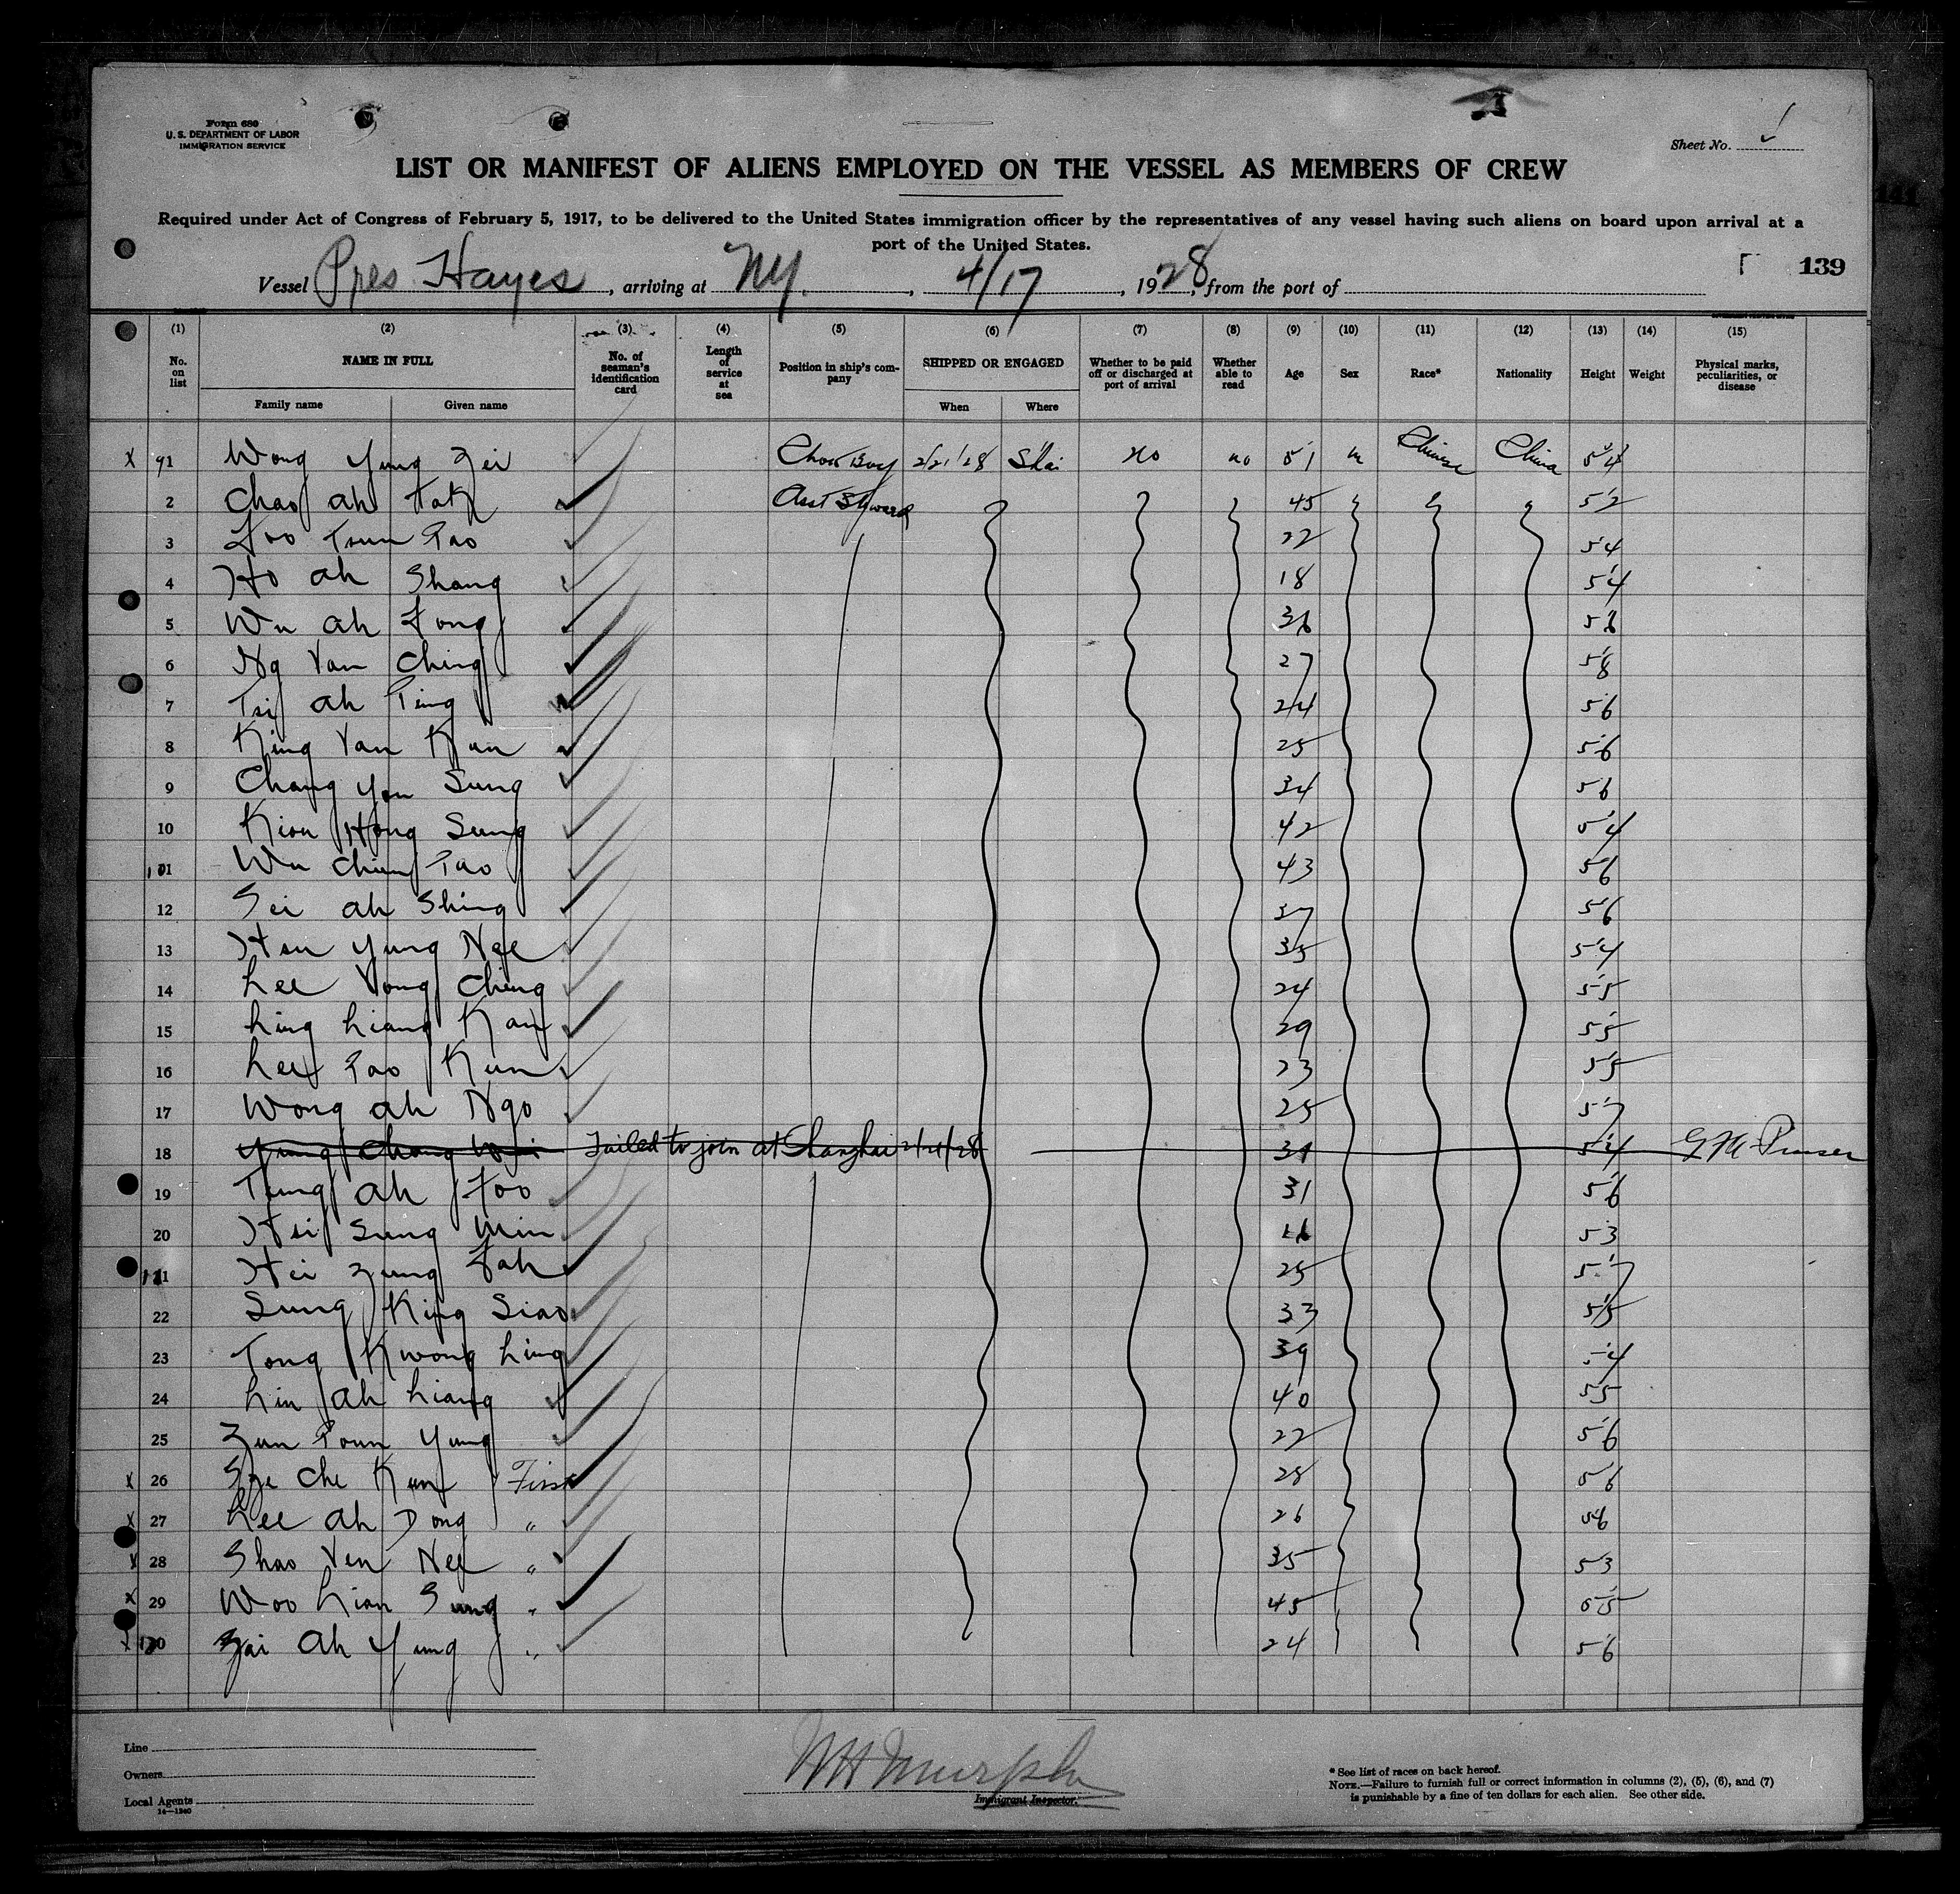 Form 680
U. S. DEPARTMENT OF LABOR
IMMIGRATION SERVICE
Sheet No.
LIST OR MANIFEST OF ALIENS EMPLOYED ON THE VESSEL AS MEMBERS OF CREW
Required under Act of Congress of February 5, 1917, to be delivered to the United States immigration officer by the representatives of any vessel having such aliens on board upon arrival at a
port of the United States.
139
Vessel Pres Hayes, arriving at NY., 4/17, 1928, from the port of
(1) (2) (3) (4) (5) (6) (7) (8) (9) (10) (11) (12) (13) (14) (15)
No. on list NAME IN FULL No. of seaman's identification card Length of service at sea Position in ship's company SHIPPED OR ENGAGED Whether to be paid off or discharged at port of arrival Whether able to read Age Sex Race* Nationality Height Weight Physical marks, peculiarities, or disease
Family name Given name When Where
X 91 Wong Yung Zei Chow Boy 2/21/28 S'hai no no 51 m Chinese China 5'4
2 Chao ah Tak Asst Steward 45 5'2
3 Foo Tsun Pao 22 5'4
4 Ho ah Shang 18 5'4
5 Wu ah Fong 36 5'6
6 Ng Van Ching 27 5'8
7 Tsi ah Ping 24 5'6
8 King Van Kun 25 5'6
9 Chang You Sung 34 5'6
10 Kiou Hong Sung 42 5'4
101 Wu Chun Pao 43 5'6
12 Sei ah Shing 37 5'6
13 Hsu Yung Nee 35 5'4
14 Lee Vong Ching 24 5'5
15 Ling Liang Kan 29 5'5
16 Lee Pao Kun 23 5'5
17 Wong ah Ngo 25 5'7
18 Yung Chang Failed to join at Shanghai 2/21/28 5'4 Purser
19 Tung ah Foo 31 5'6
20 Hsi Sung Min 5'3
111 Hsi Zung Fah 25 5'7
22 Sung King Siao 33 5'5
23 Tong Kwong Ling 39 5'4
24 Lin ah Liang 40 5'5
25 Zun Poun Yung 22 5'6
X 26 Sze Che Kun First 28 5'6
X 27 Lee ah Dong " 26 5'6
X 28 Shao Ven Nee " 35 5'3
X 29 Woo Lian Sung " 45 5'5
120 Zai ah Yung " 24 5'6
Line
Owners
Local Agents
14—1240
W H Murphy
Immigrant Inspector.
* See list of races on back hereof.
NOTE.—Failure to furnish full or correct information in columns (2), (5), (6), and (7)
is punishable by a fine of ten dollars for each alien. See other side.